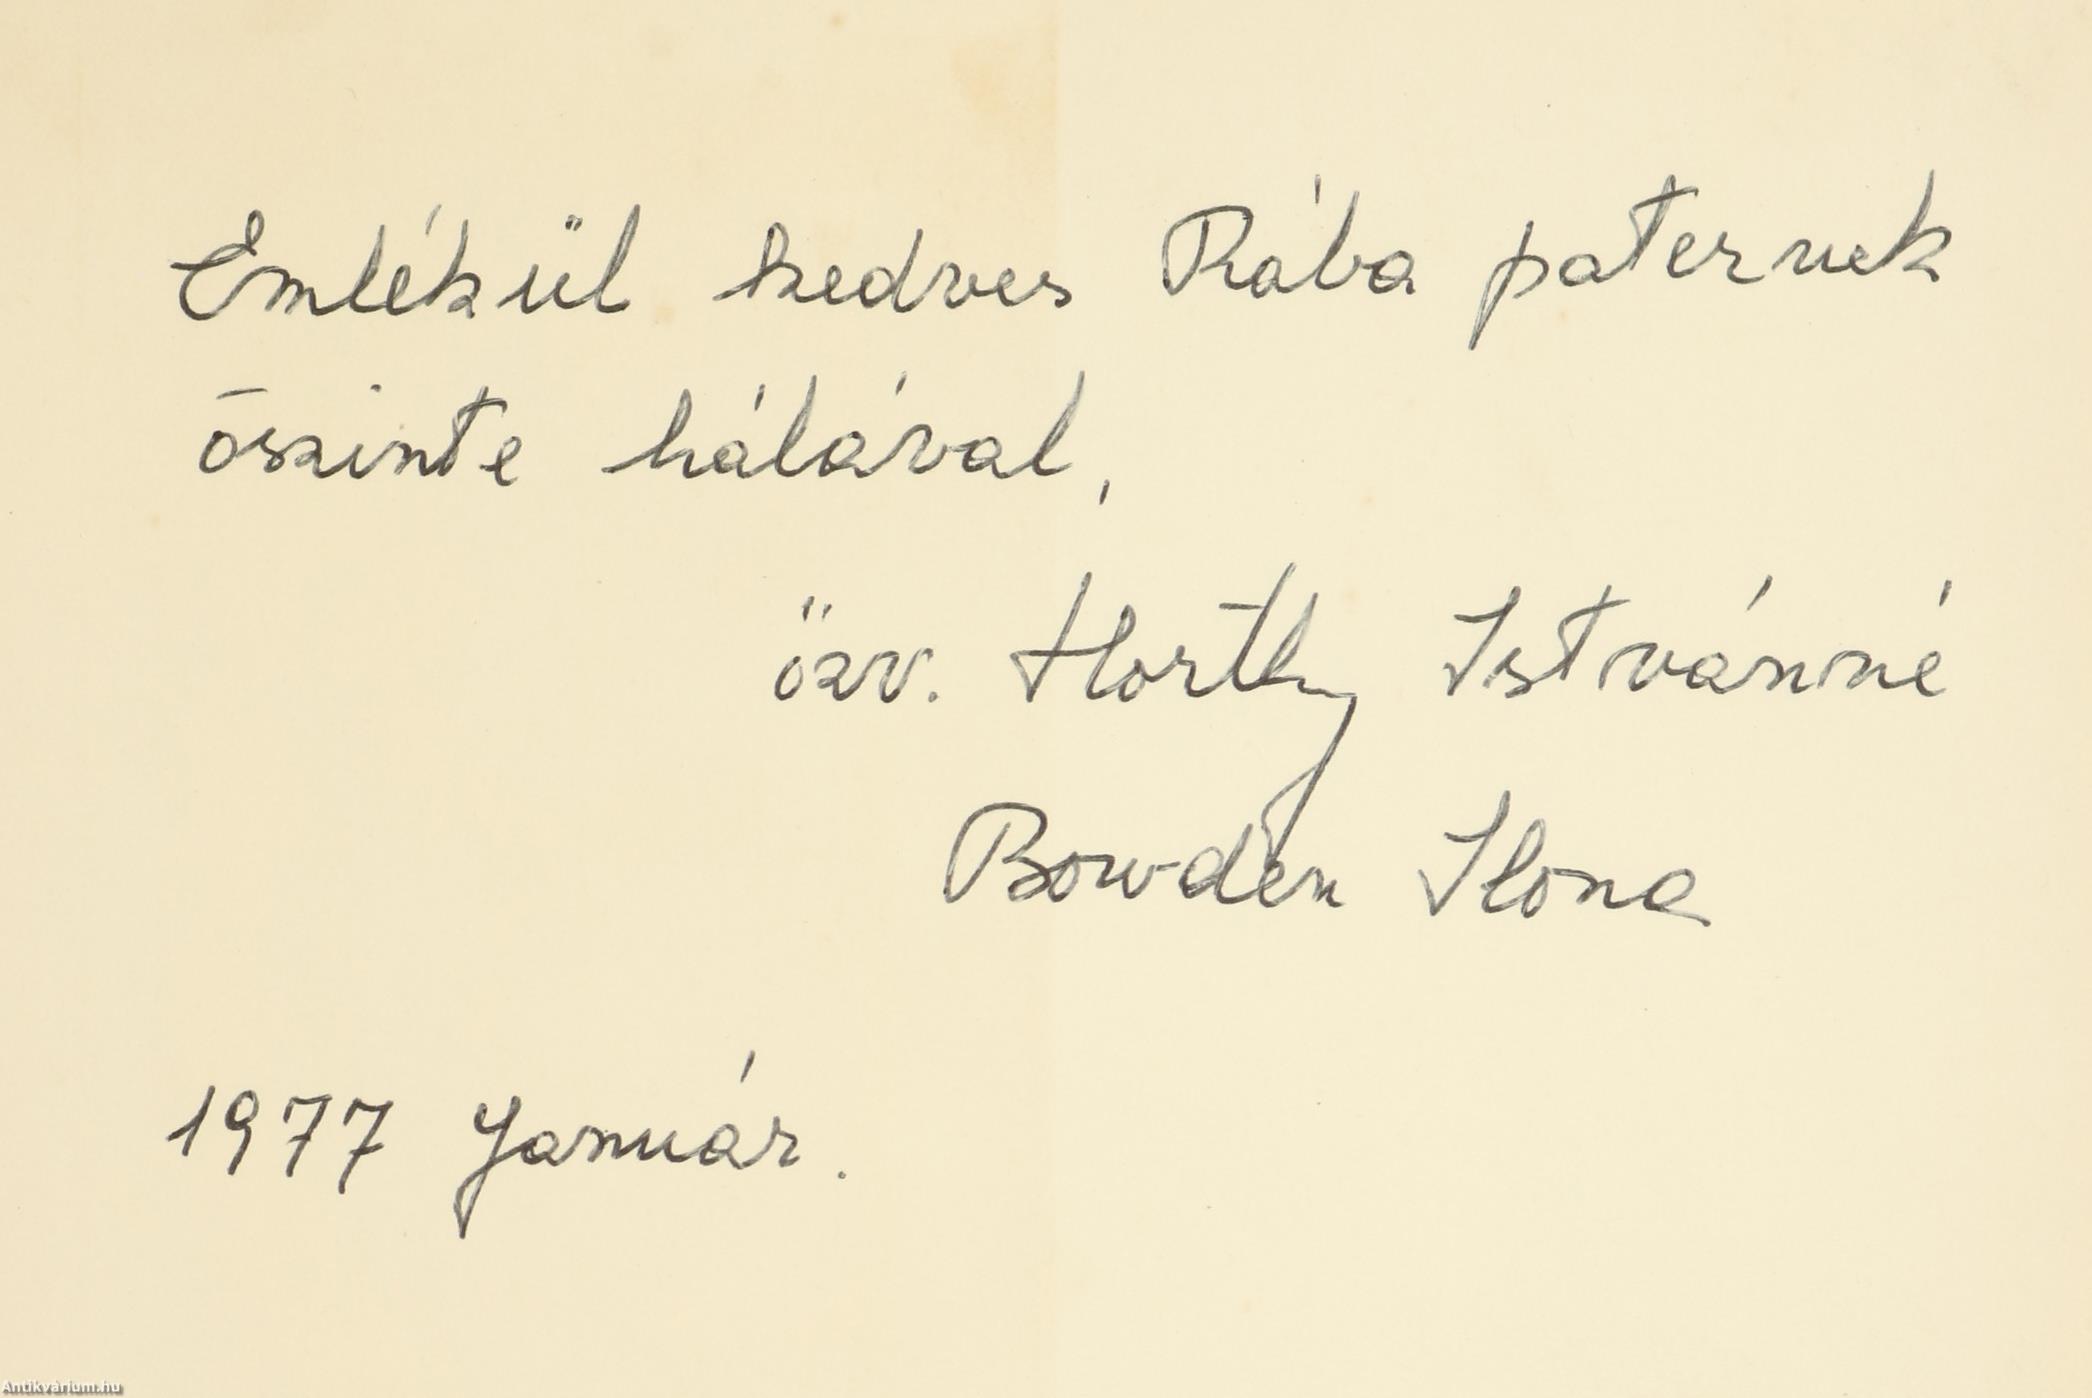 Emlékül kedves Rába paternek
őszinte hálával,
özv. Horthy Istvánné
Bowden Ilona
1977 Január.
Antikvárium.hu